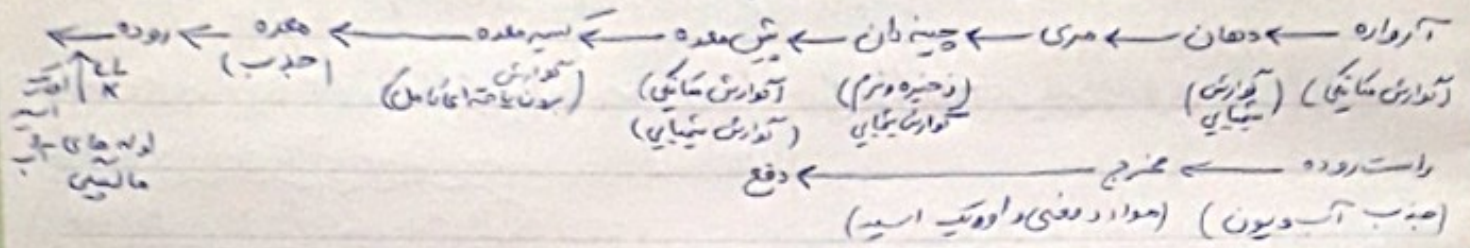 آرواره ← دهان ← مری ← چینه دان ← پیش معده ← کیسه معده ← معده ← روده ←
(گوارش مکانیکی) (گوارش شیمیایی) (ذخیره و نرم گوارش شیمیایی) (گوارش مکانیکی) (گوارش شیمیایی) (گوارش برون یاخته ای کامل) (جذب)
لوله های مالپیگی
راست روده ← مخرج ← دفع
(جذب آب و یون) (مواد دفعی و اوریک اسید)